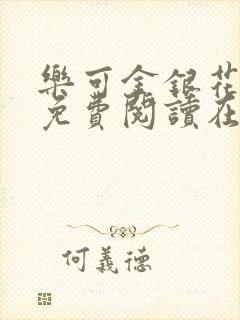 樂可金銀花
免費閱讀在
何義德